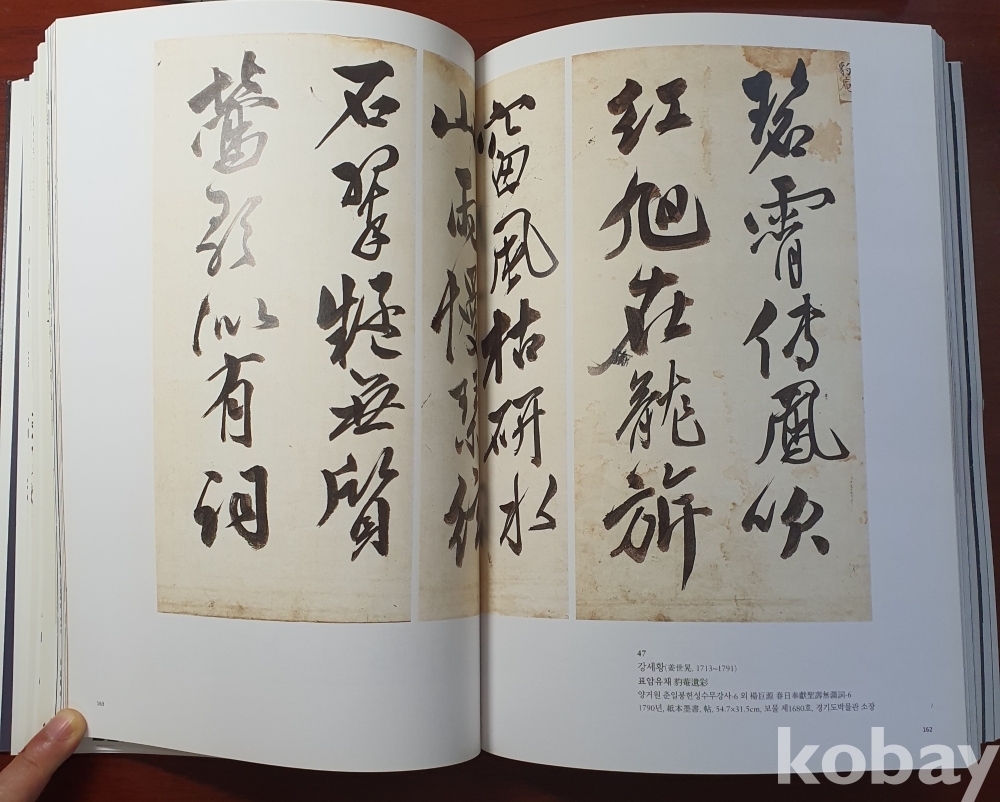 碧霄傳鳳吹
紅旭在龍旂
窗風枯研水
山雨慢琴絃
石翠疑無質
鶯歌似有詞
47
강세황(姜世晃, 1713~1791)
표암유채 豹菴遺彩
양거원 춘일봉헌성수무강사-6 외 楊巨源 春日奉獻聖壽無疆詞-6
1790년, 紙本墨書, 帖, 54.7×31.5cm, 보물 제1680호, 경기도박물관 소장
162
163
kobay